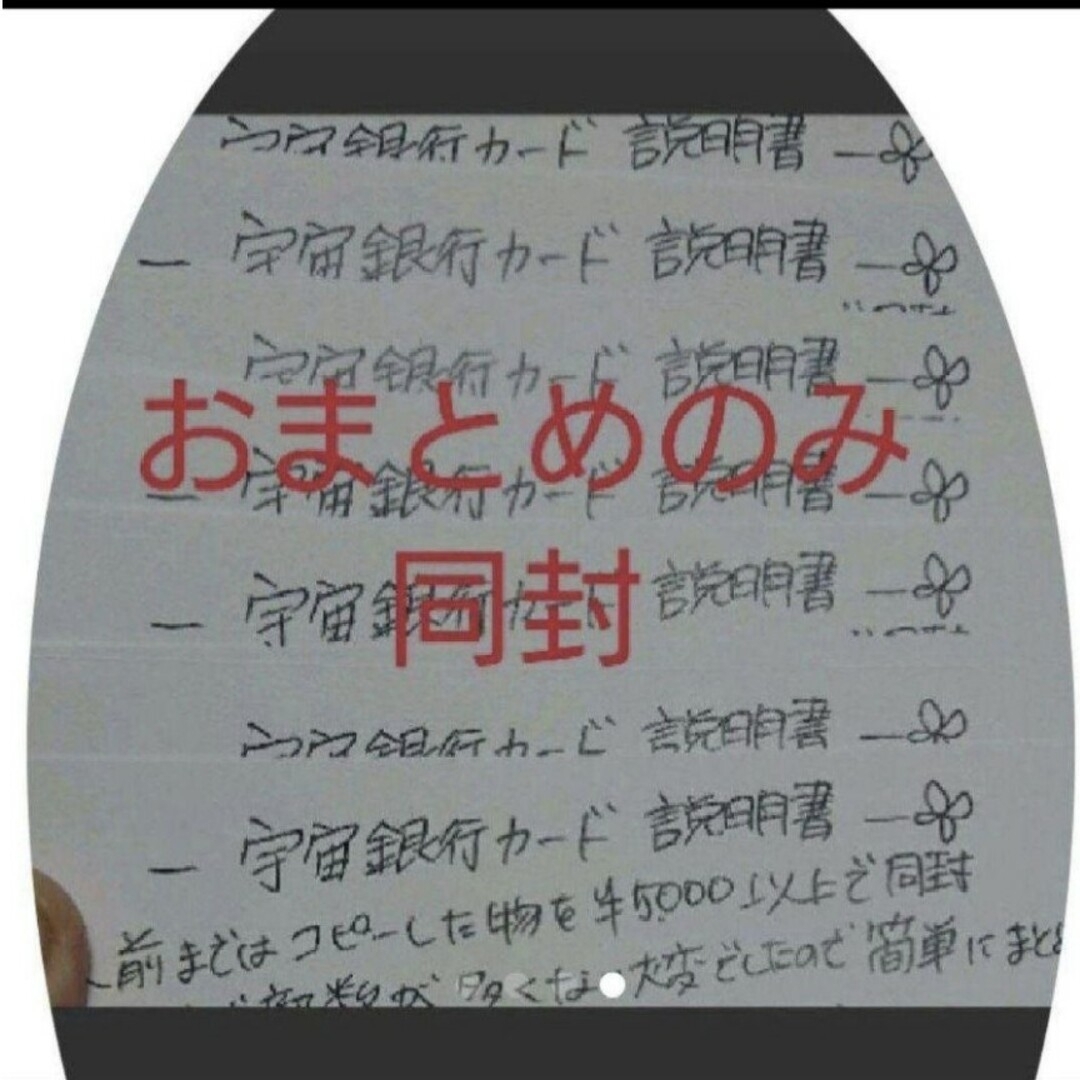 宇宙銀行カード 説明書 ー
ー 宇宙銀行カード 説明書 ー
宇宙銀行カード 説明書 ー
おまとめのみ
ー 宇宙銀行カード 説明書 ー
同封
ー 宇宙銀行カード 説明書 ー
宇宙銀行カード 説明書 ー
ー 宇宙銀行カード 説明書 ー
前まではコピーした物を¥5000以上で同封
多くな 大変でしたので簡単にまと